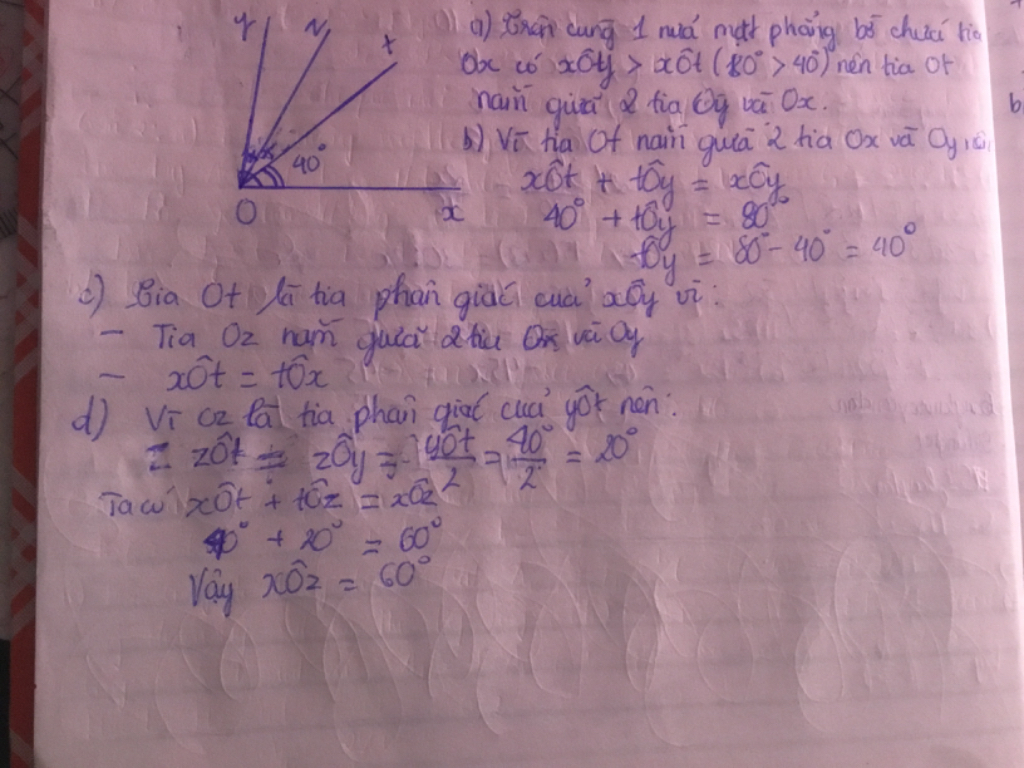 y
z
t
40°
O
x
a) Trên cùng 1 nửa mặt phẳng bờ chứa tia
Ox có xÔy > xÔt (80° > 40°) nên tia Ot
nằm giữa 2 tia Oy và Ox.
b) Vì tia Ot nằm giữa 2 tia Ox và Oy nên
xÔt + tÔy = xÔy
40° + tÔy = 80°
tÔy = 80° - 40° = 40°
c) Tia Ot là tia phân giác của xÔy vì:
- Tia Oz nằm giữa 2 tia Ox và Oy
- xÔt = tÔx
d) Vì Oz là tia phân giác của yÔt nên:
= zÔt = zÔy = yÔt/2 = 40°/2 = 20°
Ta có xÔt + tÔz = xÔz
40° + 20° = 60°
Vậy xÔz = 60°